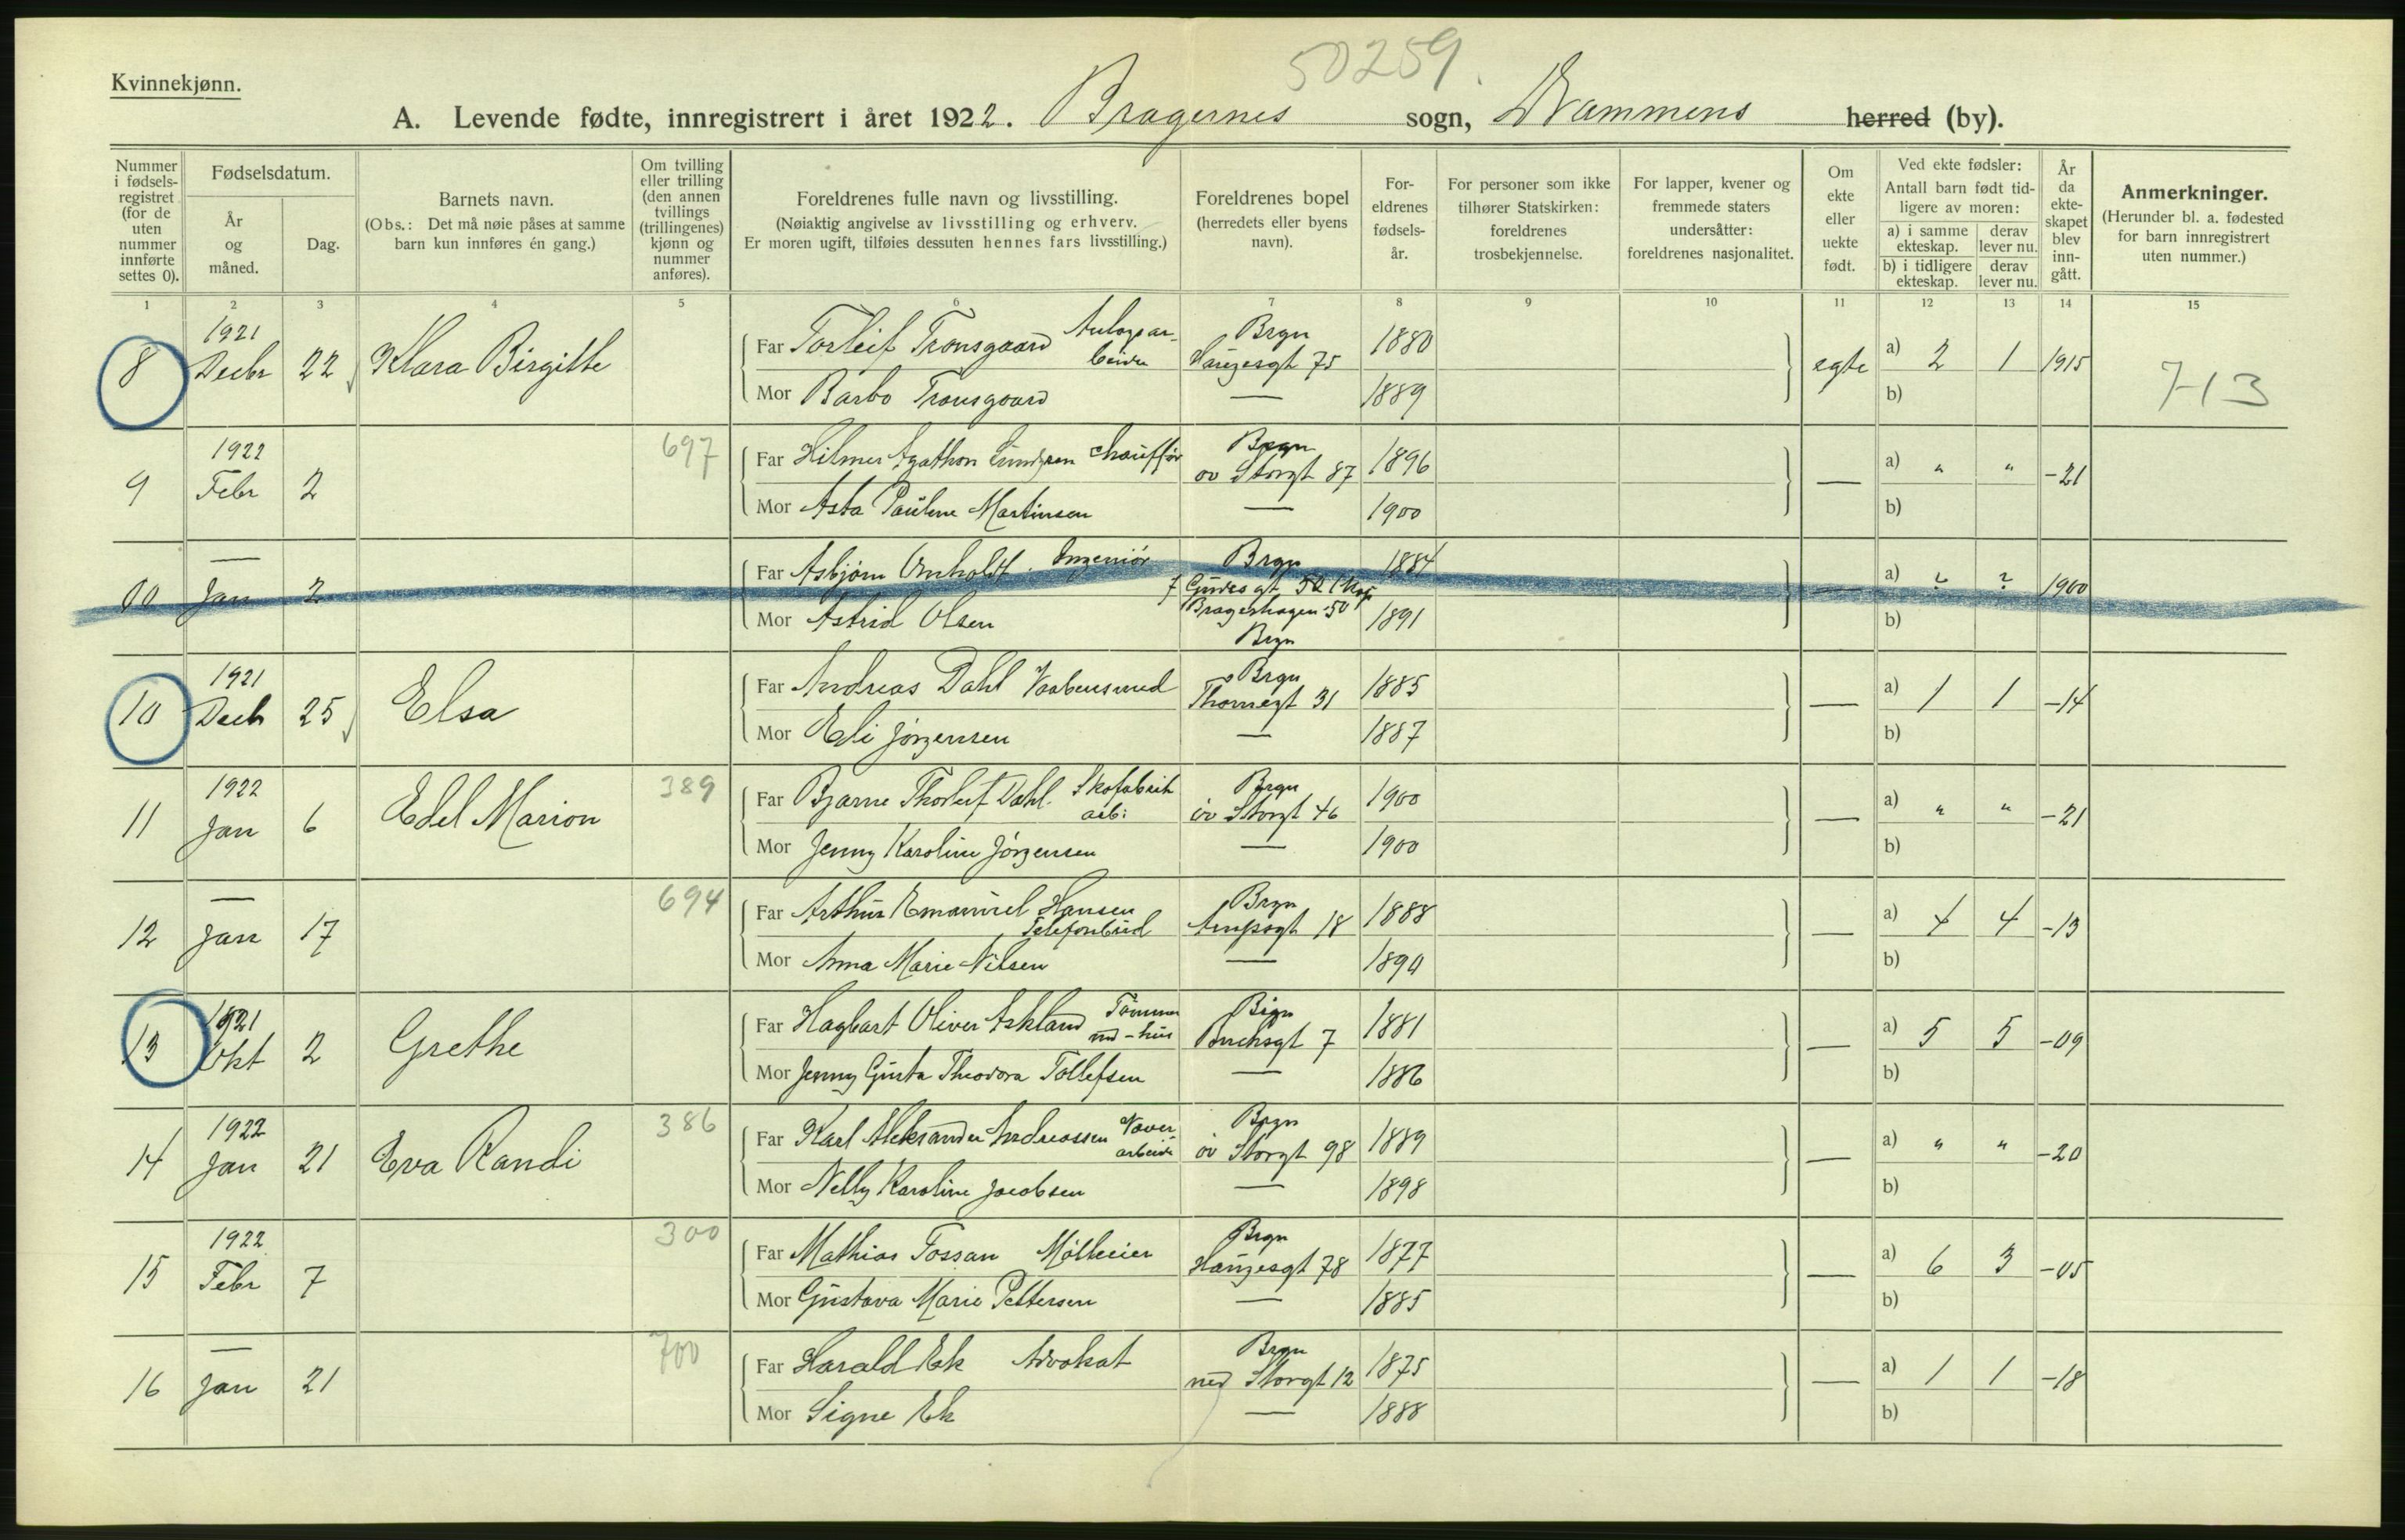 50259.
Kvinnekjønn.
A. Levende fødte, innregistrert i året 1922. Bragernes sogn, Drammens herred (by).
Nummer i fødsels-registret (for de uten nummer innførte settes 0).
Fødselsdatum.
År og måned.
Dag.
Barnets navn.
(Obs.: Det må nøie påses at samme barn kun innføres én gang.)
Om tvilling eller trilling (den annen tvillings (trillingenes) kjønn og nummer anføres).
Foreldrenes fulle navn og livsstilling.
(Nøiaktig angivelse av livsstilling og erhverv.
Er moren ugift, tilføies dessuten hennes fars livsstilling.)
Foreldrenes bopel (herredets eller byens navn).
For-eldrenes fødsels-år.
For personer som ikke tilhører Statskirken: foreldrenes trosbekjennelse.
For lapper, kvener og fremmede staters undersåtter: foreldrenes nasjonalitet.
Om ekte eller uekte født.
Ved ekte fødsler:
Antall barn født tid-ligere av moren:
a) i samme ekteskap.
derav lever nu.
b) i tidligere ekteskap.
derav lever nu.
År da ekte-skapet blev inn-gått.
Anmerkninger.
(Herunder bl. a. fødested for barn innregistrert uten nummer.)
1 2 3 4 5 6 7 8 9 10 11 12 13 14 15
8 1921 Decbr 22 Klara Birgitte
Far Torleif Tronsgaard Brgn Haugesgt 75 1880 egte a) 2 1 1915 713
Mor Barbo Tronsgaard — 1889 b)
9 1922 Febr 2 697
Far Hilmer Agathon Lundgren Chauffør Brgn øv Storgt 87 1896 — a) " " -21
Mor Asta Pauline Martinsen — 1900 b)
10 — Jan 2
Far Asbjørn Ingeniør Brgn 1884 — a) ? ? 1900
Mor Astrid Olsen Bragerhagen 50 Brgn 1891 b)
10 1921 Decb 25 Elsa
Far Andreas Dahl Vaabensmed Brgn Thornegt 31 1885 — a) 1 1 -14
Mor Eli Jørgensen — 1887 b)
11 1922 Jan 6 Edel Marion 389
Far Bjarne Thorleif Dahl. Skofabrik arb: Brgn øv Storgt 46 1900 — a) " " -21
Mor Jenny Karoline Jørgensen — 1900 b)
12 — Jan 17 694
Far Arthur Emanuel Hansen Telefonbud Brgn 18 1888 — a) 4 4 -13
Mor Anna Marie Nilsen — 1890 b)
13 1921 Okt 2 Grethe
Far Hagbart Oliver Askland Brgn Buchsgt 7 1881 — a) 5 5 -09
Mor Jenny Gusta Theodora Tollefsen — 1886 b)
14 1922 Jan 21 Eva Randi 386
Far Karl Aleksander Andreassen arbeider Brgn øv Storgt 98 1889 — a) " " -20
Mor Nelly Karoline Jacobsen — 1898 b)
15 1922 Febr 7 300
Far Mathias Fossan Mølleeier Brgn Haugesgt 78 1877 — a) 6 3 -05
Mor Gustava Marie Pettersen — 1885 b)
16 — Jan 21 700
Far Harald Ek Advokat Brgn ned Storgt 12 1875 — a) 1 1 -18
Mor Signe Ek — 1888 b)